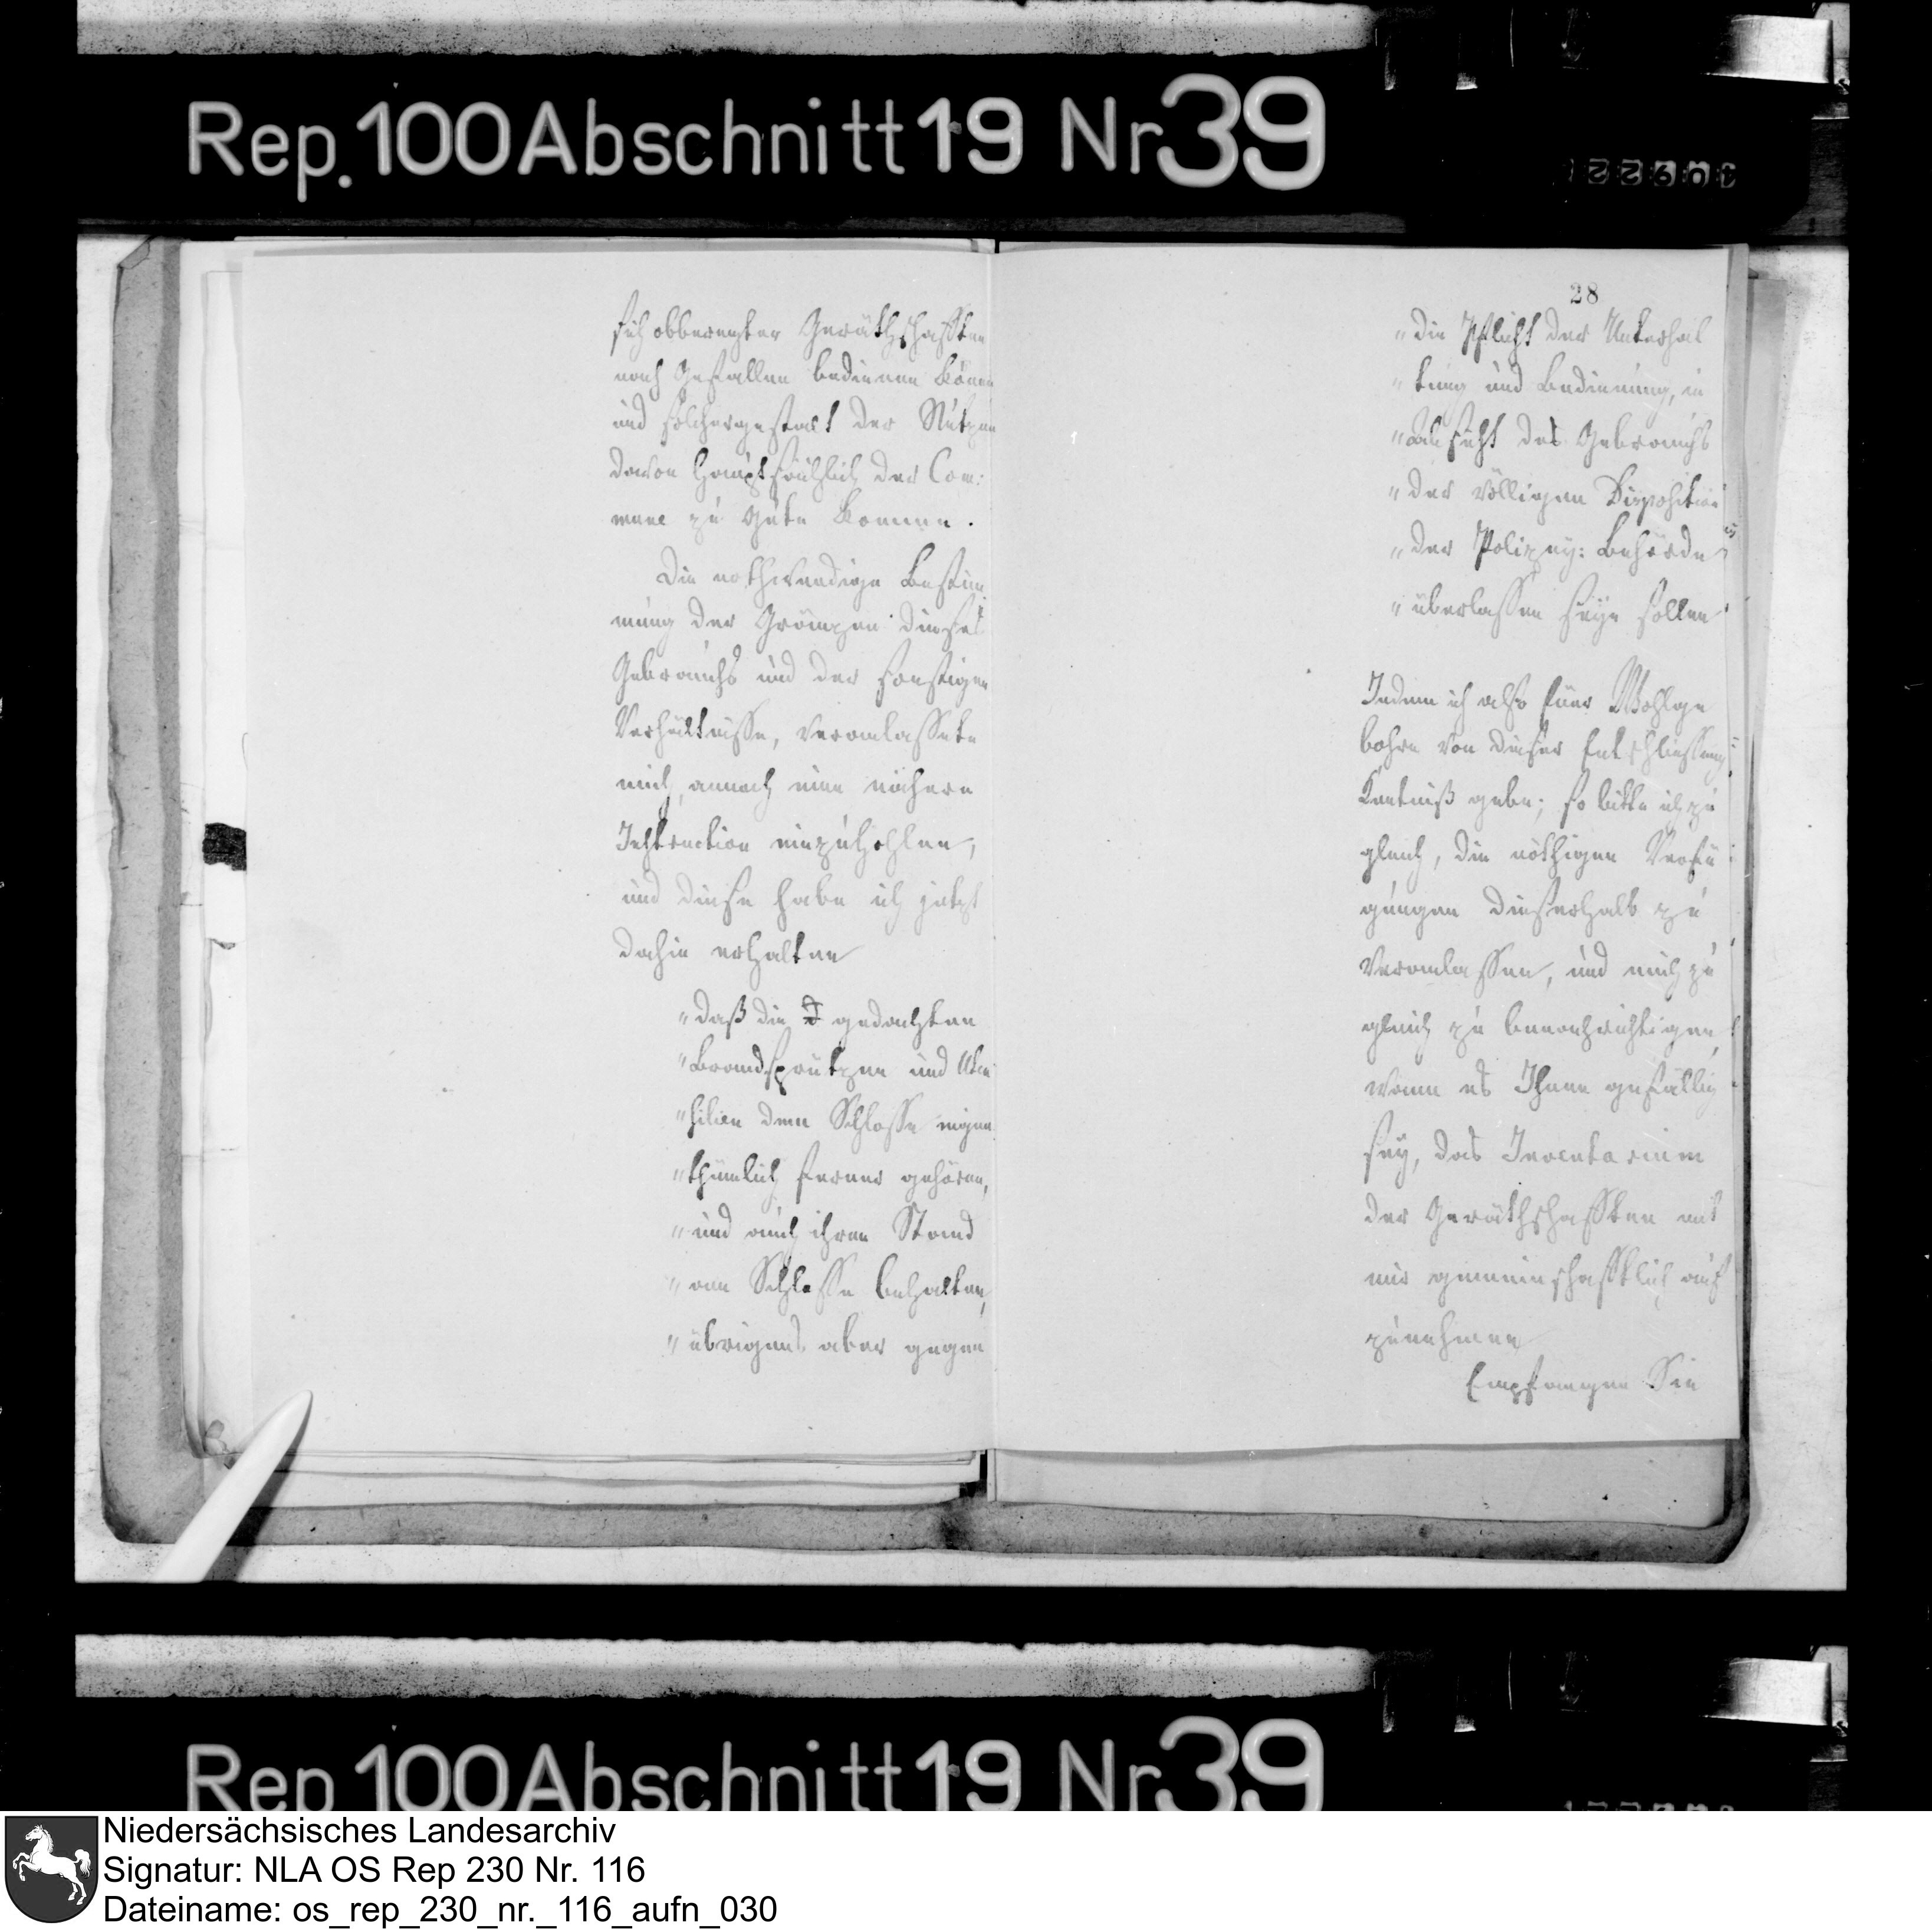 Rep. 100 Abschnitt 19 Nr 39
sich obberegter Geräthschafften
nach Gefallen bedienen könne
und solchergestalt der Nutzen
davon hauptsächlich der Com:
mune zu Gute komme.
Die nothwendige Bestim
mung der Gränzen dieses
Gebrauchs und der sonstigen
Verhältnisse, veranlassete
mich, annoch eine nähere
Instruction einzuhohlen,
und diese habe ich jetzt
dahin erhalten
„daß die gedachten
„Brandsprützen und Uten
„silien dem Schlosse eigen
„thümlich ferner gehören,
„und auch ihren Stand
„am Schlosse behalten,
„übrigens aber gegen
28
„die Pflicht der Unterhal
„tung und Bedienung, in
„Absicht des Gebrauchs
„der völligen Disposition
„der Polizey: Behörde
„überlassen seyn sollen
Indem ich also Euer Wohlge
bohrn von dieser Entschliessung
Kentniß gebe; so bitte ich zu
gleich, die nöthigen Verfü
gungen dieserhalb zu
veranlassen, und mich zu
gleich zu benachrichtigen,
wann es Ihnen gefällig
sey, das Inventarium
der Geräthschafften mit
mir gemeinschafftlich auf
zunehmen
Empfangen Sie
Rep 100 Abschnitt 19 Nr 39
Niedersächsisches Landesarchiv
Signatur: NLA OS Rep 230 Nr. 116
Dateiname: os_rep_230_nr._116_aufn_030